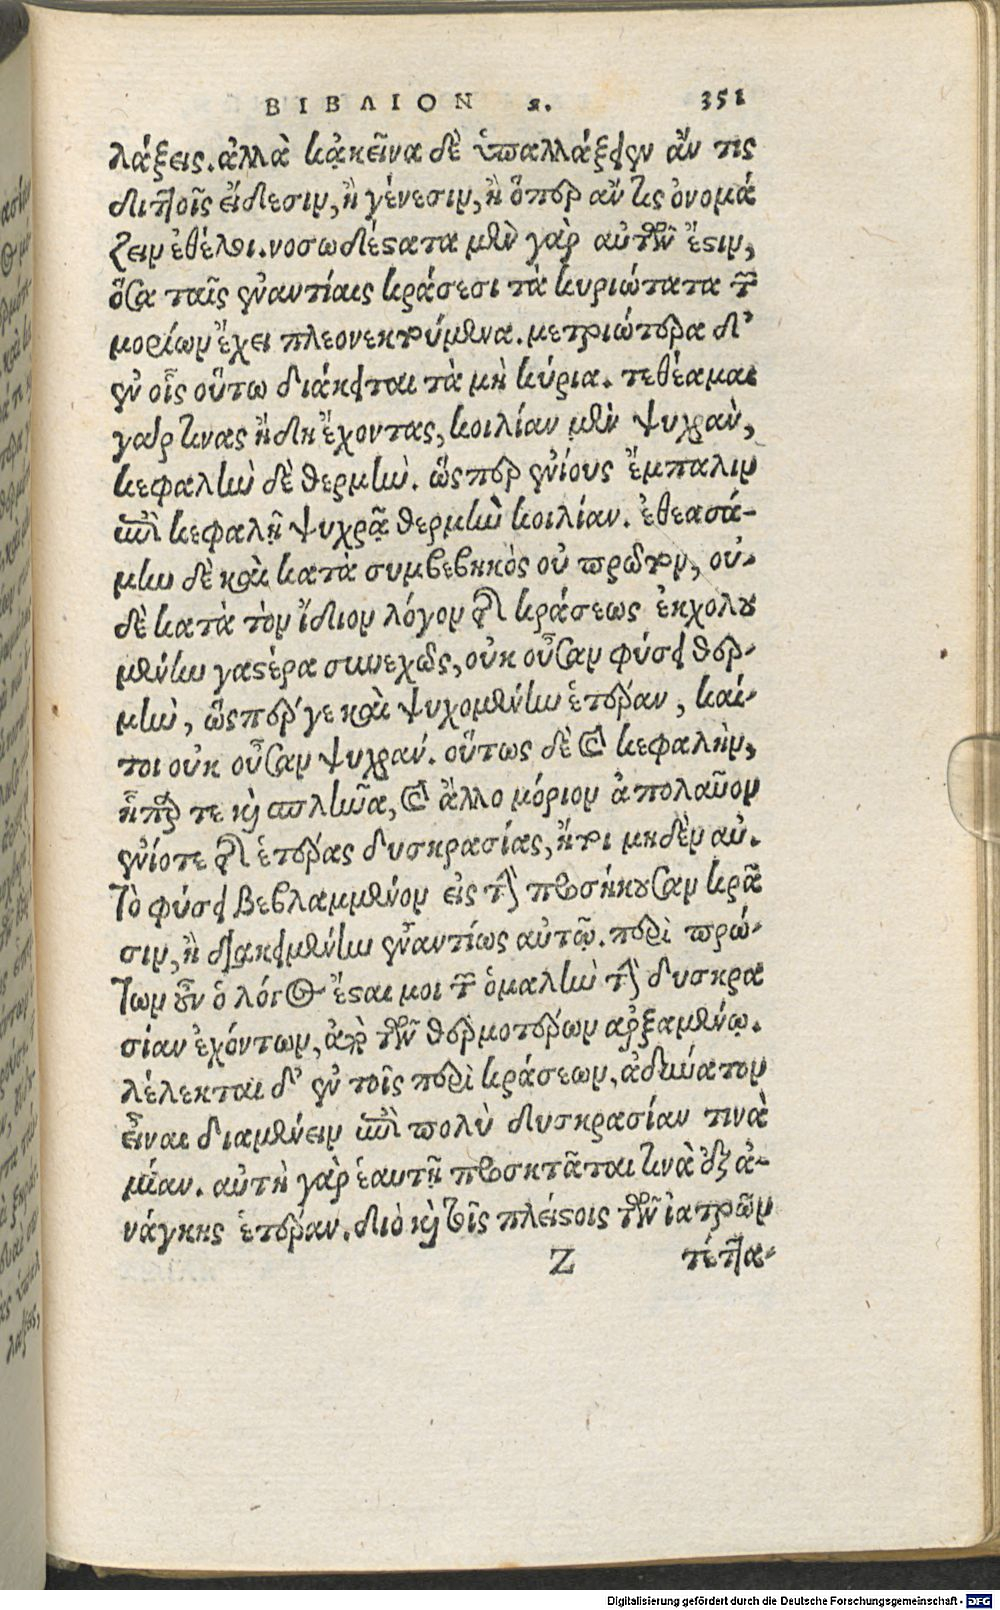 ΒΙΒΛΙΟΝ ϛ. 351
λάξεις. ἀλλὰ κᾀκεῖνα δὲ ὑπαλλάξειεν ἄν τις
διττοῖς εἴδεσιν, ἢ γένεσιν, ἢ ὅπερ ἄν τις ὀνομά
ζειν ἐθέλοι. νοσωδέστατα μὲν γὰρ αὐτῶν ἔστιν,
ὅσα ταῖς ἐναντίαις κράσεσι τὰ κυριώτατα τῶν
μορίων ἔχει πλεονεκτούμενα. μετριώτερα δ'
ἐν οἷς οὕτω διάκειται τὰ μὴ κύρια. τεθέαμαι
γάρ τινας ἤδη ἔχοντας, κοιλίαν μὲν ψυχρὰν,
κεφαλὴν δὲ θερμὴν. ὥσπερ ἐνίους ἔμπαλιν
ἐπὶ κεφαλῇ ψυχρᾷ θερμὴν κοιλίαν. ἐθεασά-
μην δὲ καὶ κατὰ συμβεβηκὸς οὐ πρώτον, οὐ-
δὲ κατὰ τὸν ἴδιον λόγον τῆς κράσεως ἐκχολου
μένην γαστέρα συνεχῶς, οὐκ οὖσαν φύσει θερ-
μὴν, ὥσπερ γε καὶ ψυχομένην ἑτέραν, καί-
τοι οὐκ οὖσαν ψυχράν. οὕτως δὲ καὶ κεφαλὴν,
ἧπάρ τε καὶ σπλῆνα, καὶ ἄλλο μόριον ἀπολαῦον
ἐνίοτε τῆς ἑτέρας δυσκρασίας, ἤτοι μηδὲν αὐ-
τὸ φύσει βεβλαμμένον εἰς τὴν προσήκουσαν κρᾶ
σιν, ἢ διακειμένην ἐναντίως αὐτῷ. περὶ πρώ-
των οὖν ὁ λόγος ἔσται μοι τῶν ὁμαλὴν τὴν δυσκρα
σίαν ἐχόντων, ἀπὸ τῶν θερμοτέρων ἀρξαμένῳ.
λέλεκται δ' ἐν τοῖς περὶ κράσεων, ἀδύνατον
εἶναι διαμένειν ἐπὶ πολὺ δυσκρασίαν τινὰ
μίαν. αὐτὴ γὰρ ἑαυτῇ προσκτᾶται τινὰ ἐξ ἀ-
νάγκης ἑτέραν. διὸ καὶ τοῖς πλείστοις τῶν ἰατρῶν
Ζ τέττα-
Digitalisierung gefördert durch die Deutsche Forschungsgemeinschaft - DFG